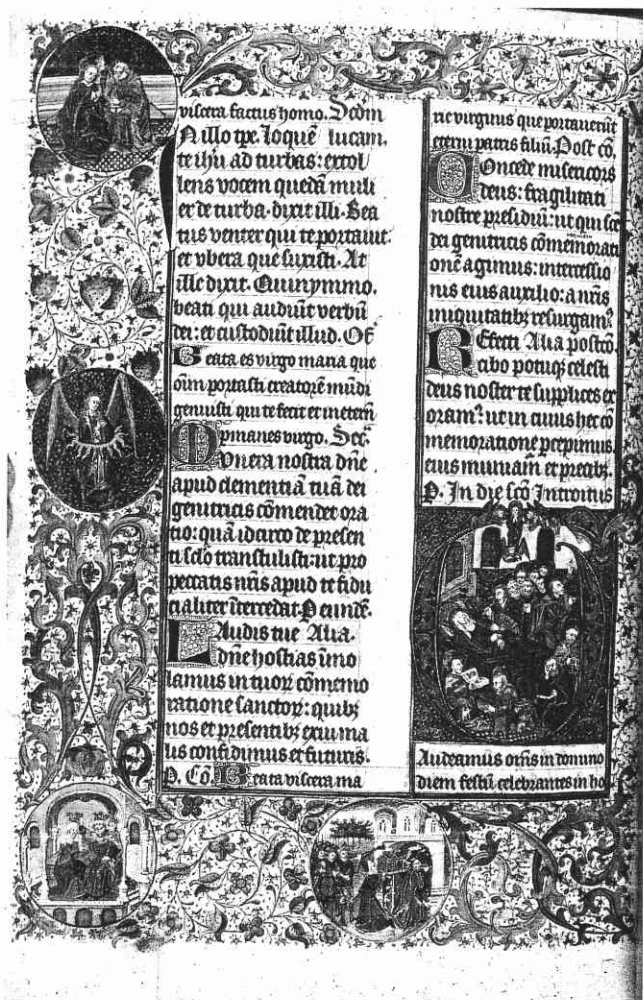 viscera factus homo. Scdm
N illo tpe. loquē lucam.
te ihu ad turbas: extol
lens vocem quedā muli
er de turba. dixit illi. Bea
tus venter qui te portauit.
et vbera que suxisti. At
ille dixit. Quinymmo.
beati qui audiūt verbū
dei: et custodiūt illud. Of
Beata es virgo maria que
oīm portasti creatorē mūdi
genuisti qui te fecit et in etern̄
pmanes virgo. Sec̄.
Munera nostra dn̄e
apud clementiā tuā dei
genitricis cōmendet ora
tio: quā idcirco de presen
ti sclo transtulisti: ut pro
peccatis nr̄is apud te fidu
cialiter ītercedat. P eundē.
Laudis tue Alia.
dn̄e hostias īmo
lamus in tuoꝝ cōmemo
ratione sanctoꝝ: quibꝫ
nos et presentibꝫ exui ma
lis confidimus et futuris.
P. Co. Beata viscera ma
rie virginis que portauerūt
eterni patris filiū. Post cō.
Concede misericors
deus: fragilitati
nostre presidiū: ut qui scē
dei genitricis cōmemorati
onē agimus: intercessio
nis eius auxilio: a nr̄is
iniquitatibꝫ resurgamꝰ.
Refecti Alia postcō.
cibo potuqꝫ celesti
deus noster te supplices ex
oramꝰ: ut in cuius hec cō
memoratione pcepimus.
eius muniam̄ et precibꝫ.
P. In die scō Introitus
Gaudeamus om̄s in domino
diem festū celebrantes in ho